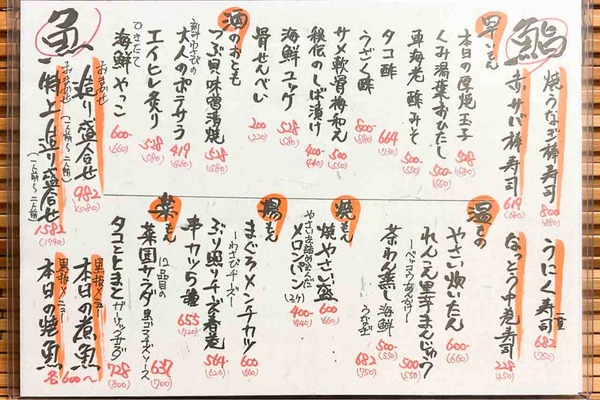 鮨
焼うなぎ棒寿司
800
(880)
赤サバ棒寿司
619
(680)
うにく寿司 一貫
682
(750)
なっとう中巻寿司
228
(250)
早いもん
本日の厚焼玉子
528
(580)
くみ湯葉おひたし
500
(550)
車海老 酢みそ
タコ酢
664
(730)
うざく酢
800
(880)
サメ軟骨梅和え
500
(550)
秘伝のしば漬け
400
(440)
海鮮ユッケ
528
(580)
骨せんべい
200
(220)
酒のおとも
つぶ貝味噌湯焼
528
(580)
大人のポテサラ
419
(460)
エイヒレ炙り
528
(580)
ひきたて
海鮮やっこ
600
(660)
魚
おまかせ
造り盛合せ
(一人前〜二人前)
982
(1080)
おまかせ
特上造り盛合せ
(一人前〜二人前)
1582
(1740)
温もの
やさい炊いたん
600
(660)
れんこん里芋まんじゅう
500
(550)
茶わん蒸し 海鮮
500
(550)
682
(750)
焼もん
焼やさい盛
600
(660)
メロンパン(2ケ)
400
(440)
揚もん
まぐろメンチカツ
600
(660)
ぶり照りチーズ春巻
564
(620)
串カツ5種
655
(720)
菜もん
12品目の
菜園サラダ 黒ゴマチーズソース
637
(700)
タコとトマトガーリックサラダ
728
(800)
黒板メニュー
本日の煮魚
黒板メニュー
本日の焼魚
各600〜